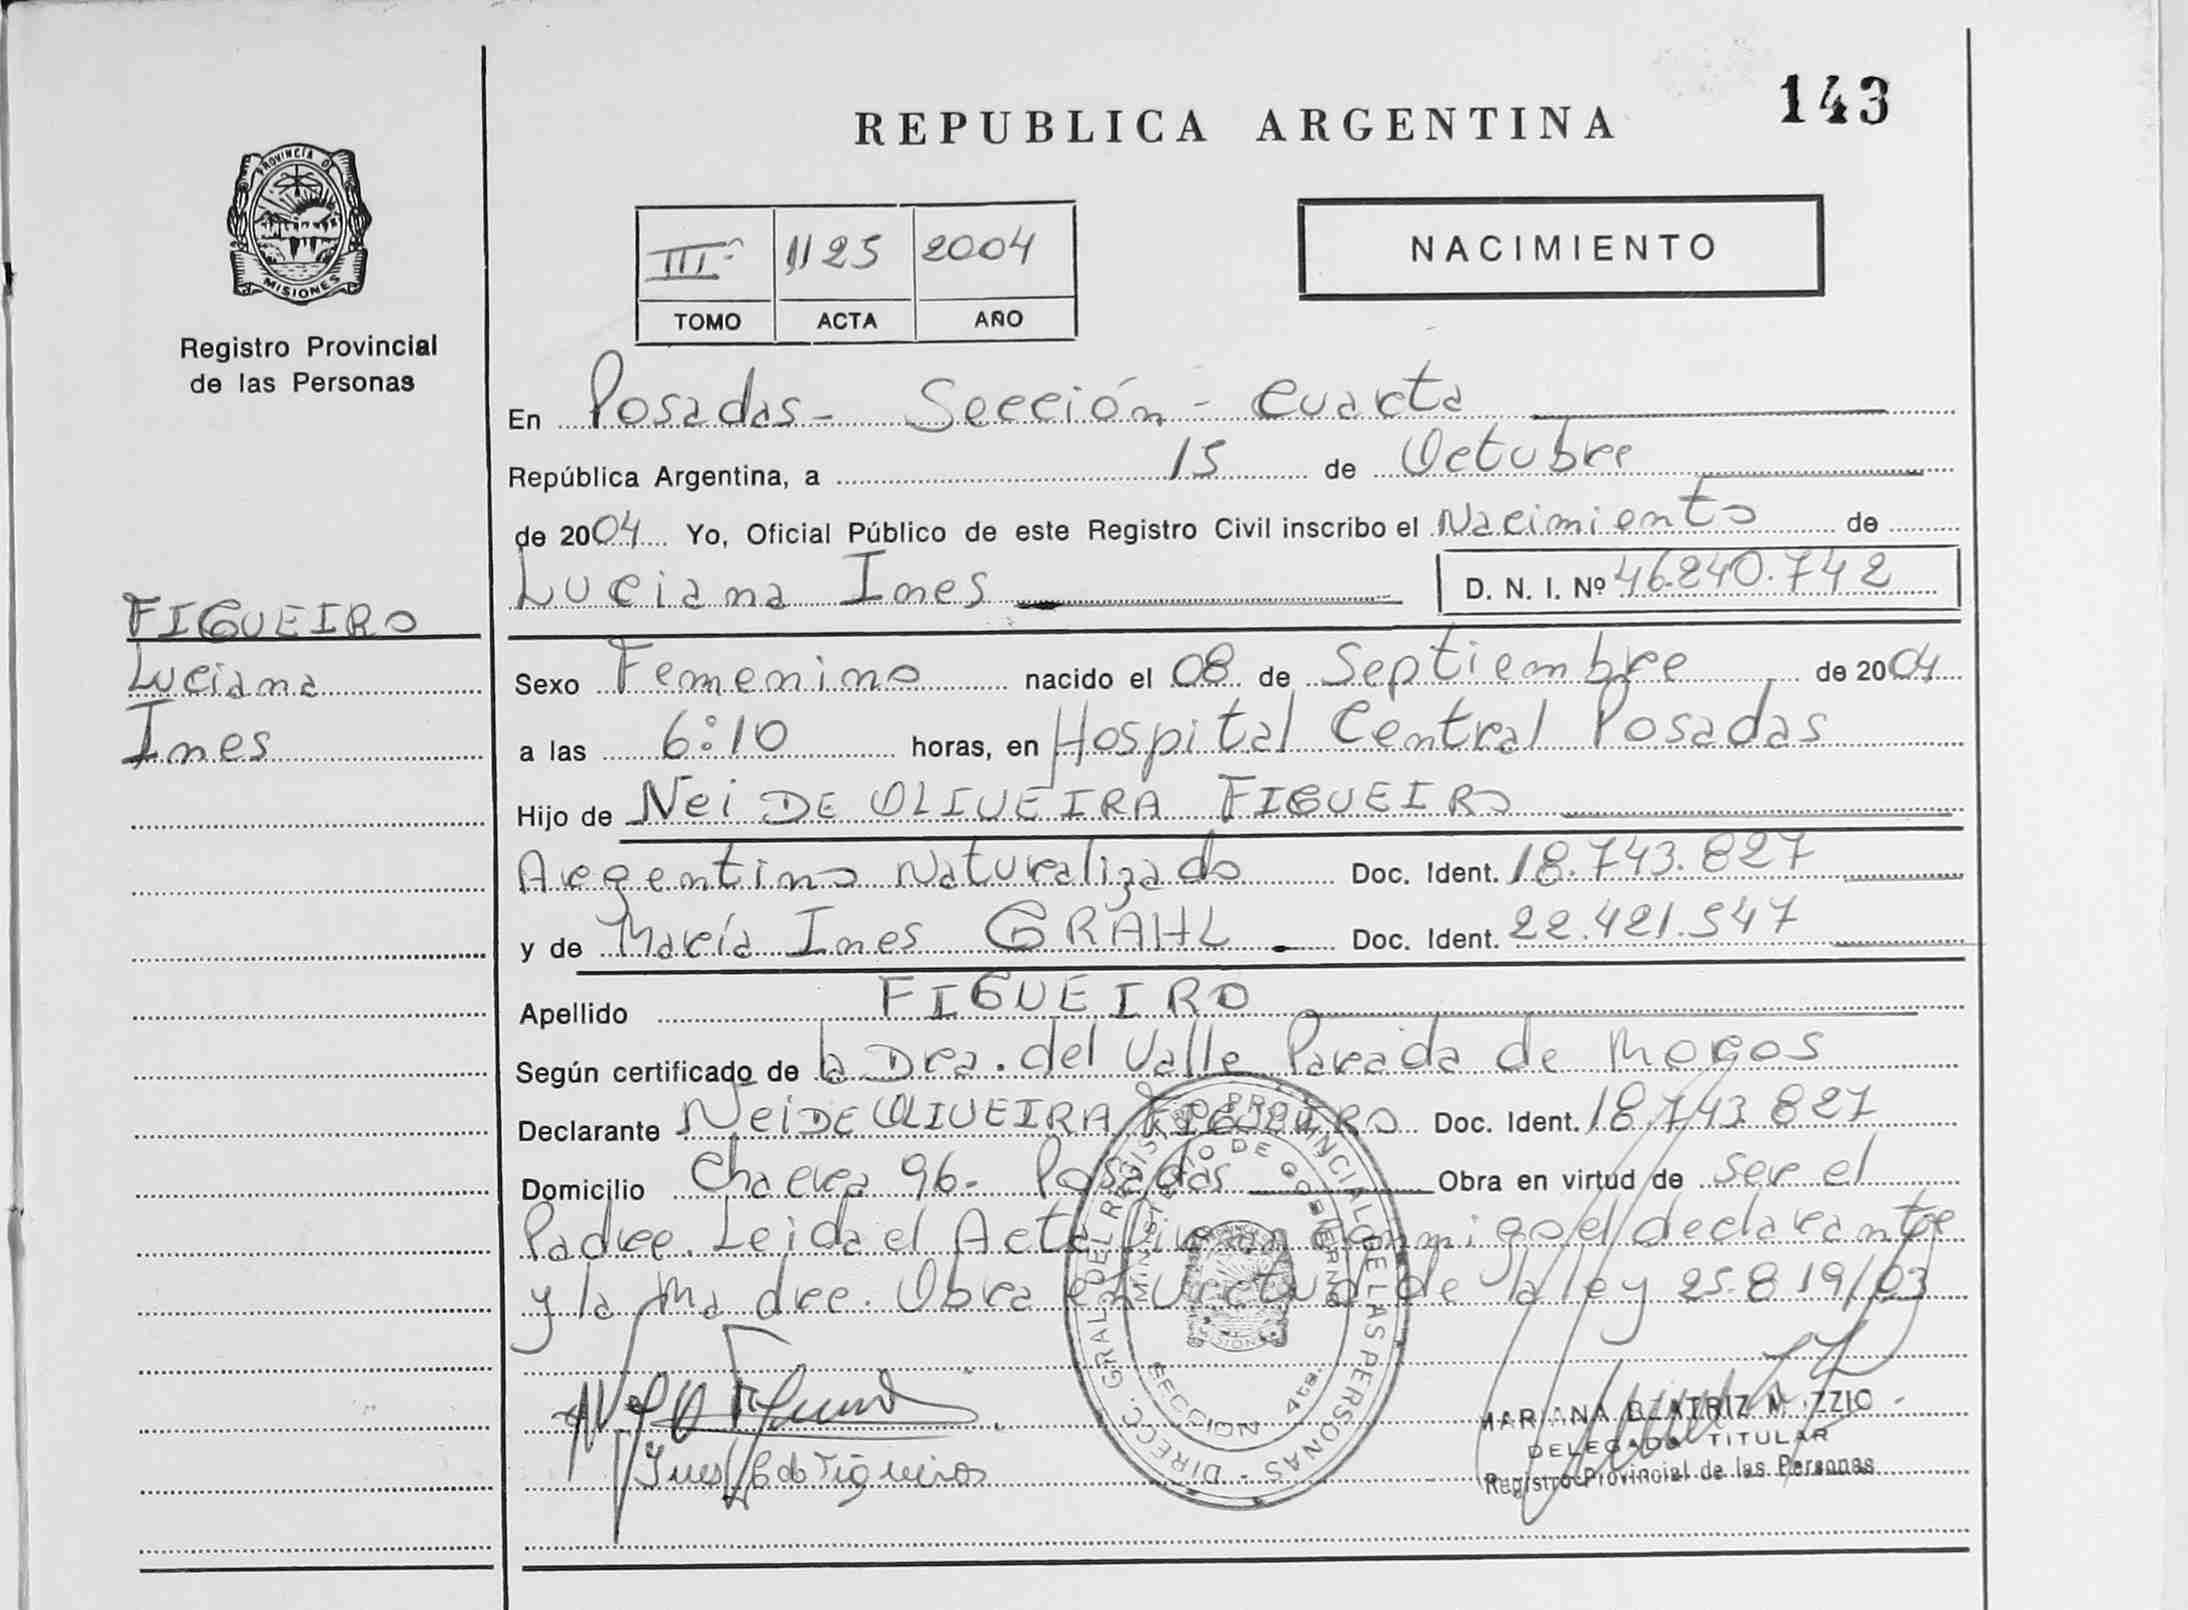 143
REPUBLICA ARGENTINA
PROVINCIA DE
MISIONES
Registro Provincial
de las Personas
III 1125 2004
TOMO ACTA AÑO
NACIMIENTO
En Posadas - Sección - Cuarta
República Argentina, a 15 de Octubre
de 2004 Yo, Oficial Público de este Registro Civil inscribo el Nacimiento de
Luciana Ines D. N. I. Nº 46.240.742
FIGUEIRO
Luciana
Ines
Sexo Femenino nacido el 08 de Septiembre de 2004
a las 6:10 horas, en Hospital Central Posadas
Hijo de Nei DE OLIVEIRA FIGUEIRO
Argentino Naturalizado Doc. Ident. 18.743.827
y de María Ines GRAHL . Doc. Ident. 22.421.547
Apellido FIGUEIRO
Según certificado de la Dra. del Valle Parada de
Declarante Nei DE OLIVEIRA FIGUEIRO Doc. Ident. 18.743.827
Domicilio Chacra 96- Posadas Obra en virtud de ser el
Padre. Leida el Acta firman conmigo el declarante
y la Madre. Obra en virtud de la ley 25.819/03
DIRECC. GRAL. DEL REGISTRO PROVINCIAL DE LAS PERSONAS -
MINISTERIO DE GOBIERNO
SECCION 4ta.
MARIANA BEATRIZ
DELEGADO TITULAR
Registro Provincial de las Personas